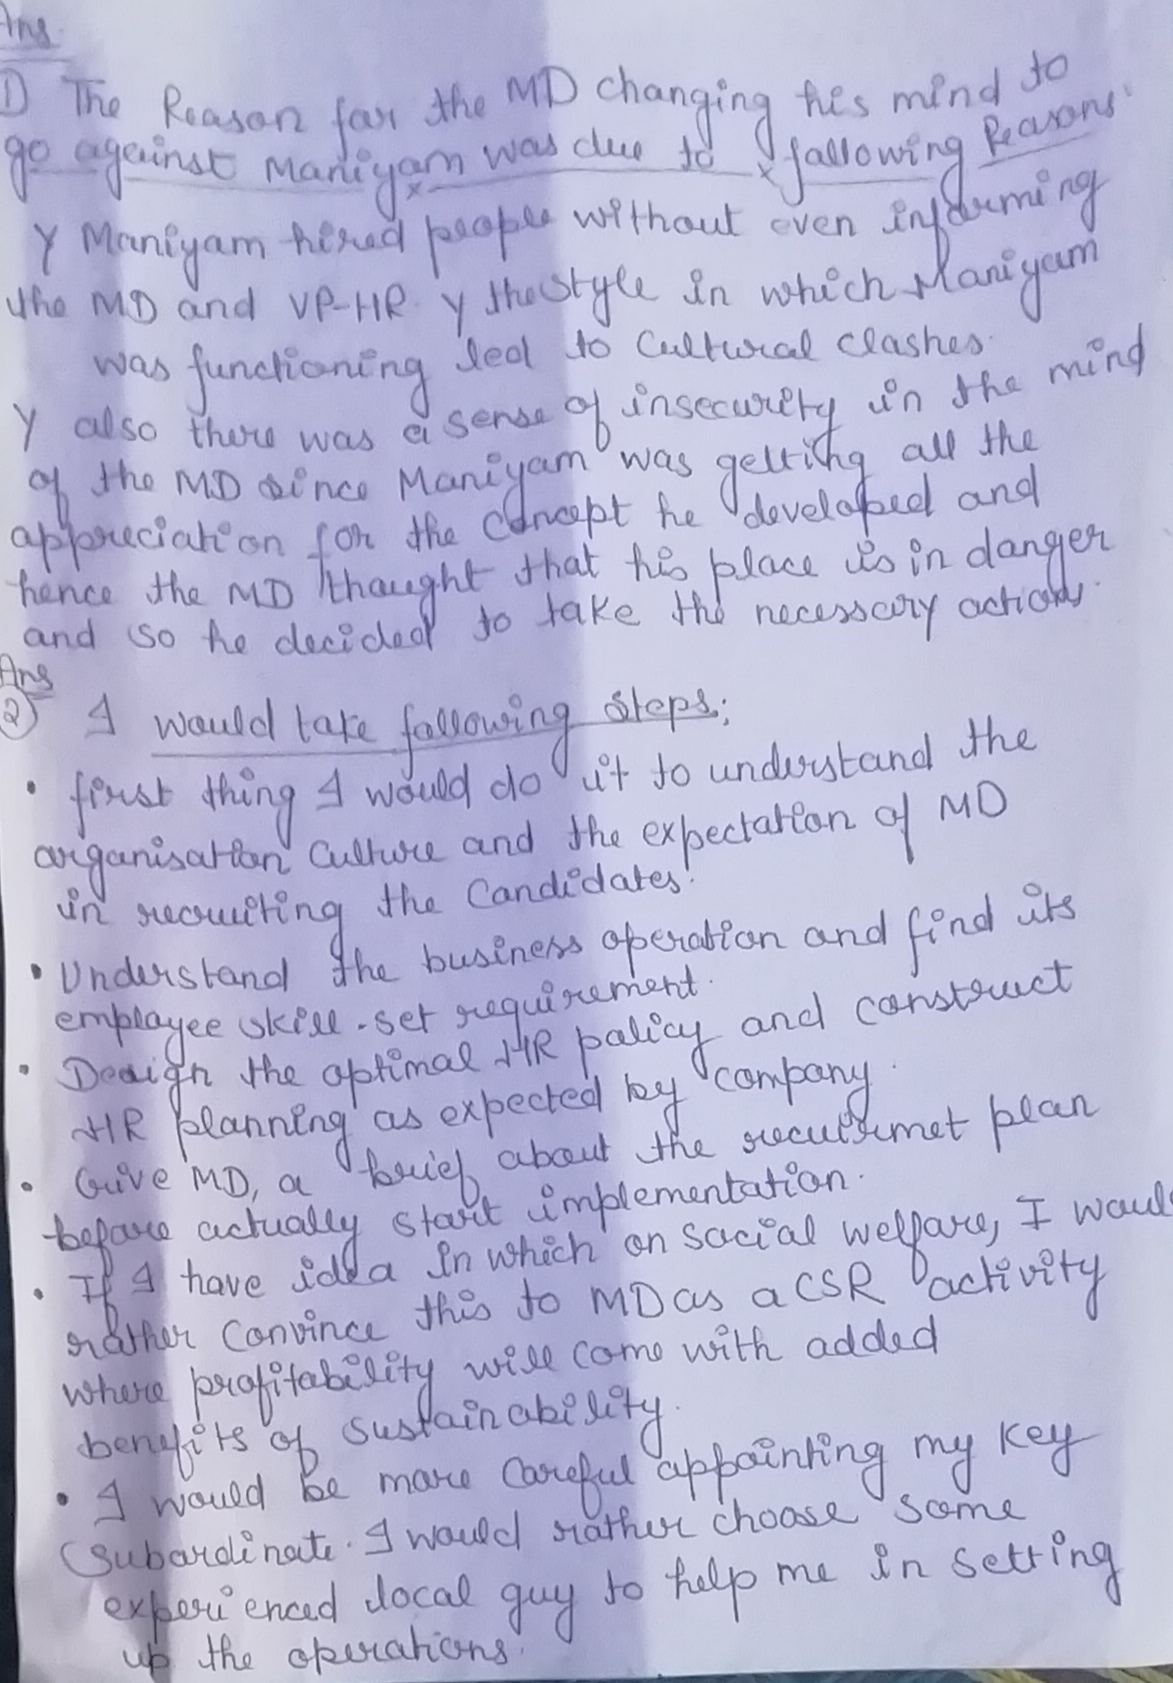 Ans.
1) The Reason for the MD changing his mind to
go against Maniyam was due to following Reasons:
Y Maniyam hired people without even informing
the MD and VP-HR. Y the style in which Maniyam
was functioning led to cultural clashes.
Y also there was a sense of insecurity in the mind
of the MD since Maniyam was getting all the
appreciation for the concept he developed and
hence the MD thought that his place is in danger
and so he decided to take the necessary actions.
Ans
2) I would take following steps:
• first thing I would do it to understand the
organisation culture and the expectation of MD
in recruiting the candidates.
• Understand the business operation and find its
employee skill-set requirement.
• Design the optimal HR policy and construct
HR planning as expected by company.
• Give MD, a brief about the recuirmet plan
before actually start implementation.
• If I have idea in which on social welfare, I woul
rather convince this to MD as a CSR activity
where profitability will come with added
benefits of sustainability.
• I would be more careful appointing my key
subordinate. I would rather choose some
experienced local guy to help me in setting
up the operations.